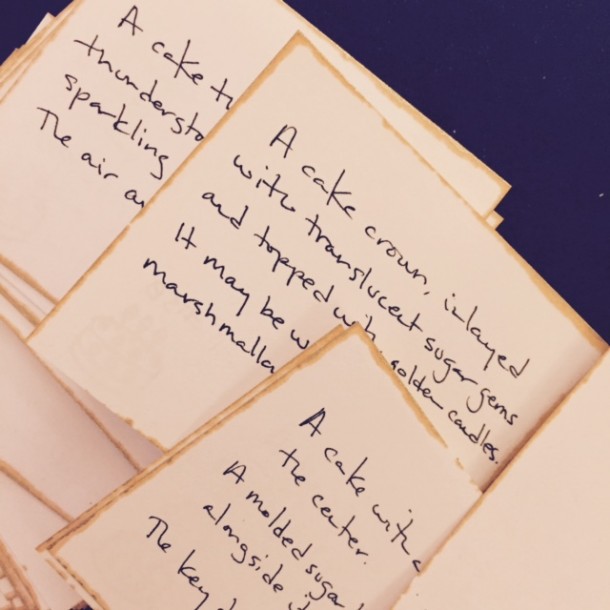 A cake
thundersto
sparkling
The air
A cake crown, inlayed
with translucent sugar gems
and topped with golden candles.
It may be
marshmalla
A cake with a
the center.
A molded sugar
alongside
The key